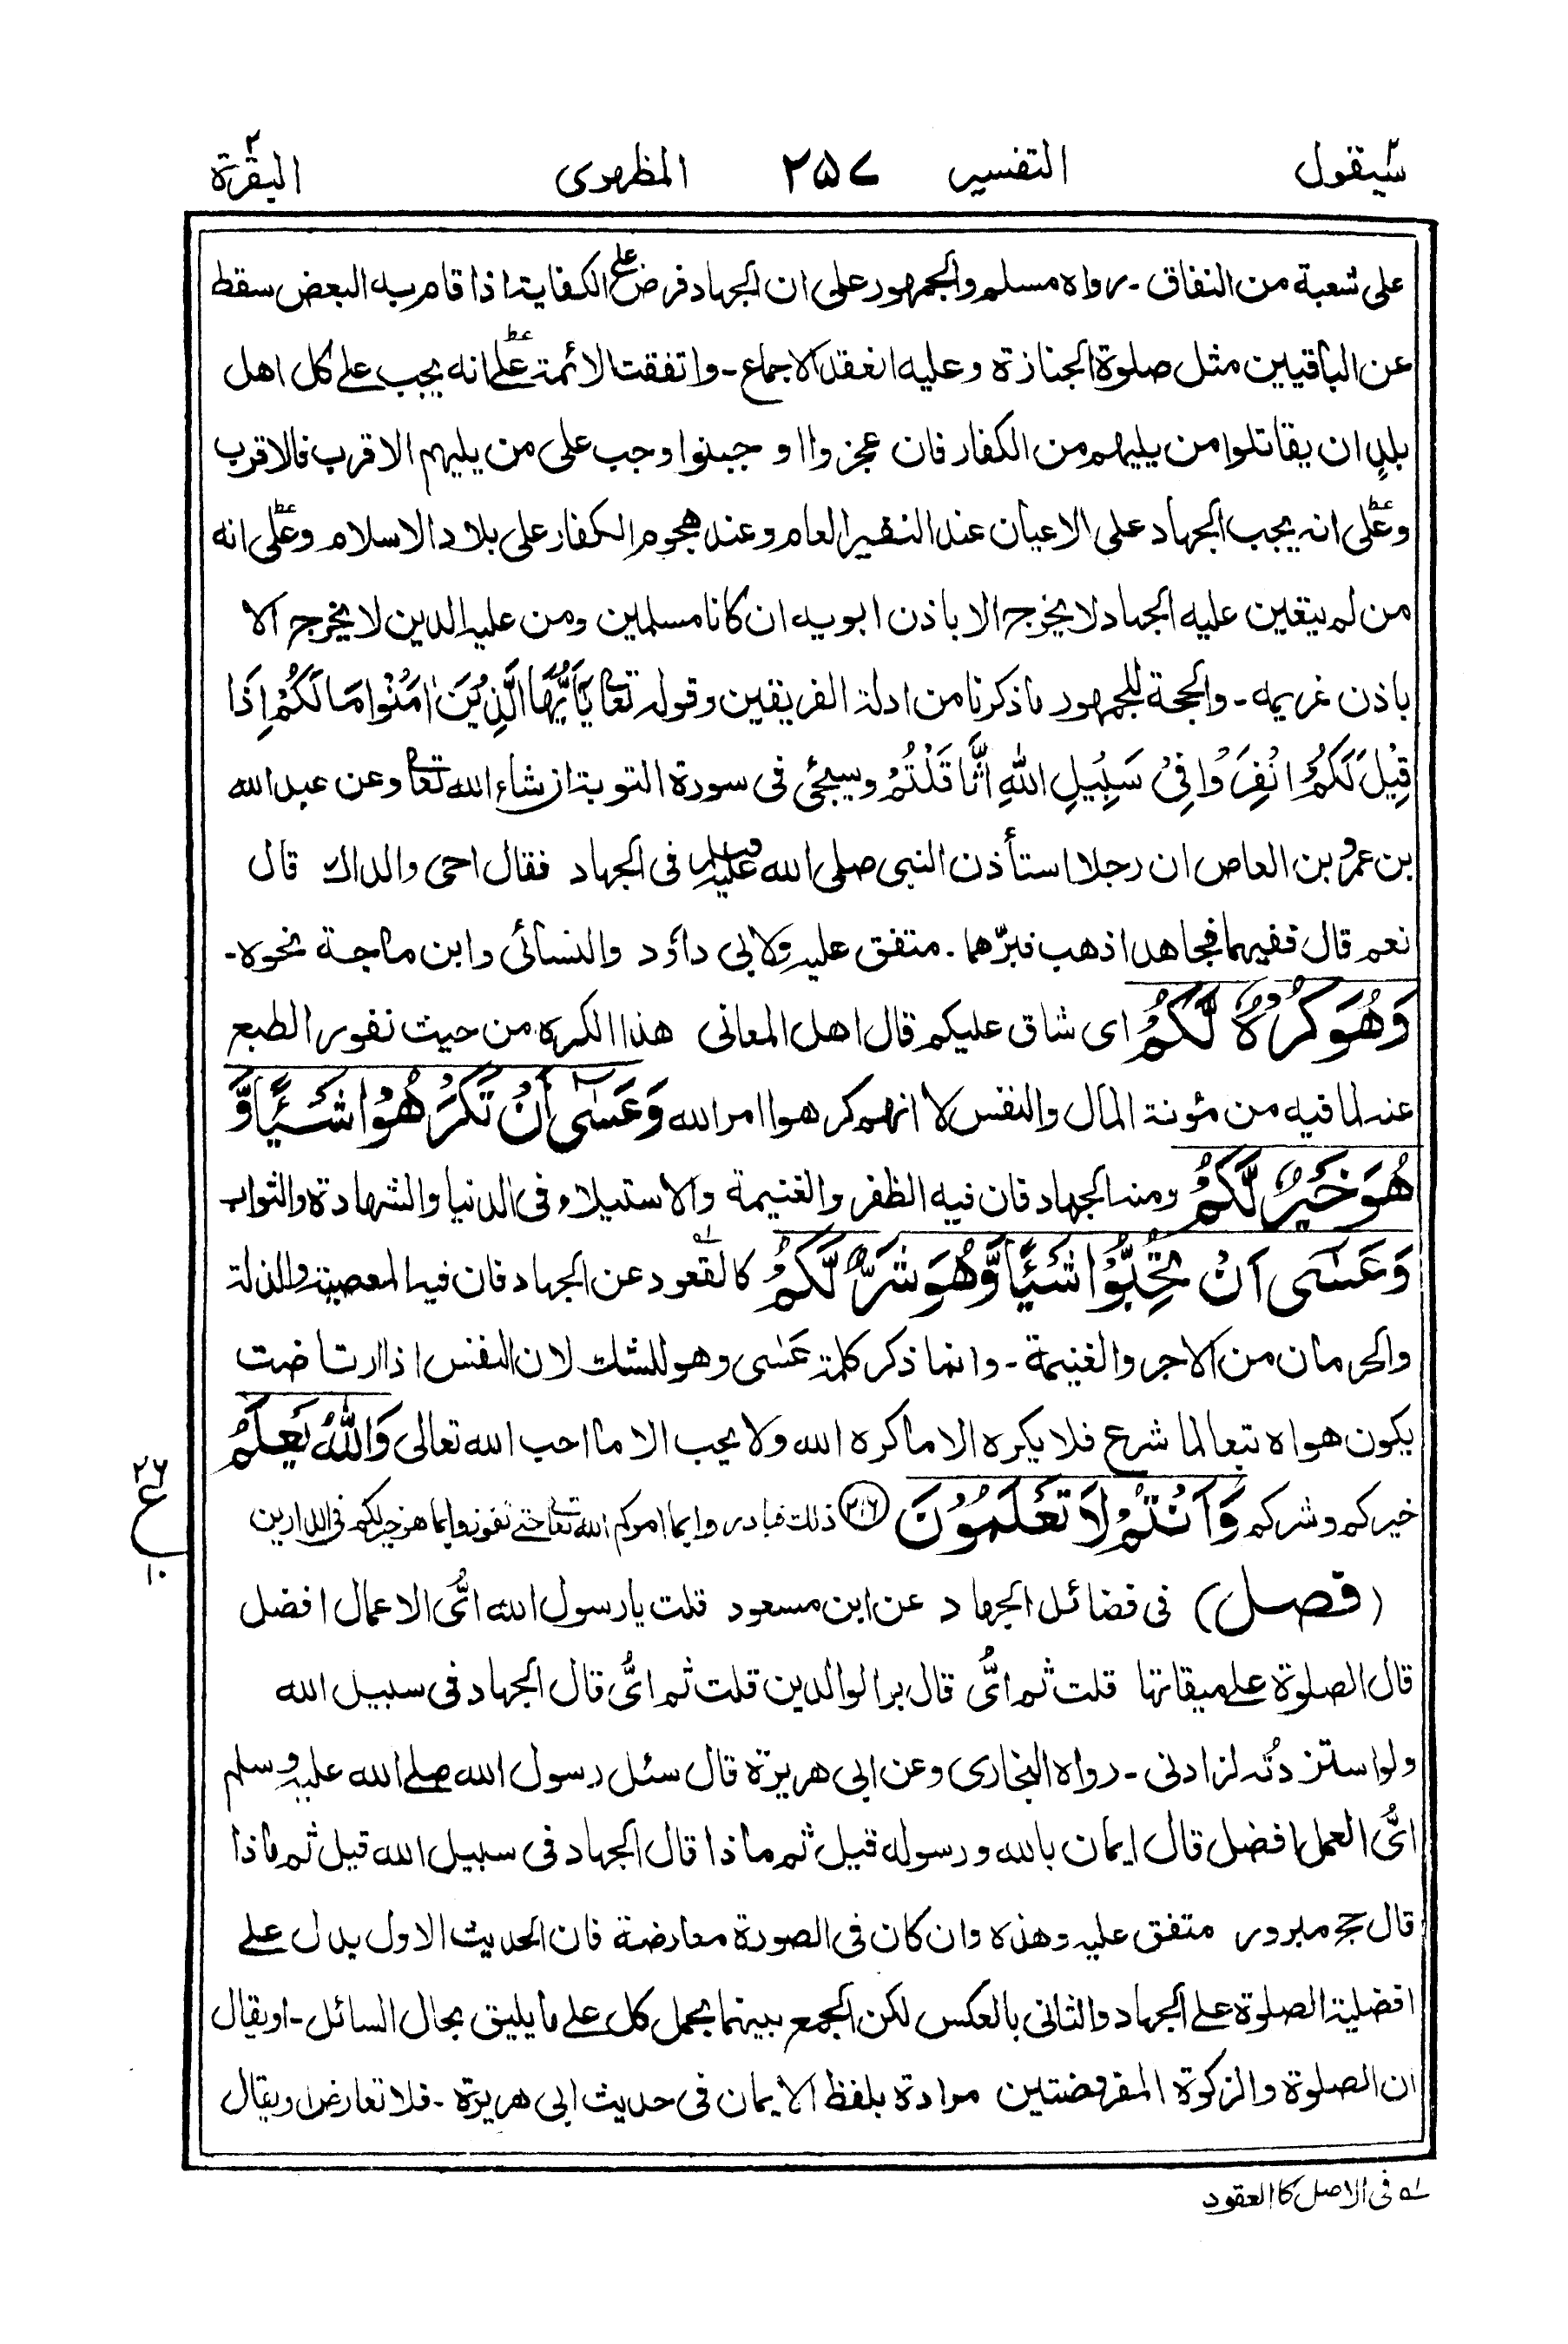 سيقول ٢ التفسير ٢٥٧ المظهرى البقرة ٢
على شعبة من النفاق - رواه مسلم والجمهور على ان الجهاد فرض على الكفاية اذا قام به البعض سقط
عن الباقيين مثل صلوة الجنازة وعليه انعقد الاجماع - واتفقت الائمة على انه يجب على كل اهل
بلدٍ ان يقاتلوا من يليهم من الكفار فان عجزوا او جبنوا وجب على من يليهم الاقرب فالاقرب
وعلى انه يجب الجهاد على الاعيان عند النفير العام وعند هجوم الكفار على بلاد الاسلام وعلى انه
من لم يتعين عليه الجهاد لا يخرج الا باذن ابويه ان كانا مسلمين ومن عليه الدين لا يخرج الا
باذن غريمه - والحجة للجمهور ما ذكرنا من ادلة الفريقين وقوله تعالى يٰٓاَيُّهَا الَّذِيْنَ اٰمَنُوْا مَا لَكُمْ اِذَا
قِيْلَ لَكُمُ انْفِرُوْا فِيْ سَبِيْلِ اللّٰهِ اثَّاقَلْتُمْ وسيجئ فى سورة التوبة ان شاء الله تعالى وعن عبد الله
بن عمرو بن العاص ان رجلا استأذن النبى صلى الله عليه وسلم فى الجهاد فقال احى والداك قال
نعم قال ففيهما فجاهد اذهب فبرّهما - متفق عليه ولابى داؤد والنسائى وابن ماجة نحوه -
وَهُوَ كُرْهٌ لَّكُمْ اى شاق عليكم قال اهل المعانى هذا الكره من حيث نفور الطبع
عنه لما فيه من مئونة المال والنفس لا انهم كرهوا امر الله وَعَسٰٓى اَنْ تَكْرَهُوْا شَيْئًا وَّ
هُوَ خَيْرٌ لَّكُمْ ومنه الجهاد فان فيه الظفر والغنيمة والاستيلاء فى الدنيا والشهادة والثواب
وَعَسٰٓى اَنْ تُحِبُّوْا شَيْئًا وَّهُوَ شَرٌّ لَّكُمْ كالقعود ؎۱ عن الجهاد فان فيه المعصية والذلة
والحرمان من الاجر والغنيمة - وانما ذكر كلمة عَسٰى وهو للشك لان النفس اذا ارتاضت
يكون هواه تبعا لما شرع فلا يكره الا ما كره الله ولا يحب الا ما احب الله تعالى وَاللّٰهُ يَعْلَمُ
خيركم وشركم وَاَنْتُمْ لَا تَعْلَمُوْنَ (٢١٦) ذلك فبادروا بما امركم الله تعالى حتى تفوزوا بما هو خير لكم فى الدارين
٢٦ ع ١٠
(فصل) فى فضائل الجهاد عن ابن مسعود قلت يا رسول الله اىُّ الاعمال افضل
قال الصلوة على ميقاتها قلت ثم اىُّ قال بر الوالدين قلت ثم اىُّ قال الجهاد فى سبيل الله
ولو استزدتُه لزادنى - رواه البخارى وعن ابى هريرة قال سئل رسول الله صلى الله عليه وسلم
اىُّ العمل افضل قال ايمان بالله ورسوله قيل ثم ماذا قال الجهاد فى سبيل الله قيل ثم ماذا
قال حج مبرور متفق عليه وهذه وان كان فى الصورة معارضة فان الحديث الاول يدل على
افضلية الصلوة على الجهاد والثانى بالعكس لكن الجمع بينهما بحمل كل على ما يليق بحال السائل - او يقال
ان الصلوة والزكوة المفروضتين مرادة بلفظ الايمان فى حديث ابى هريرة - فلا تعارض او يقال
؎۱ فى الاصل كا العقود